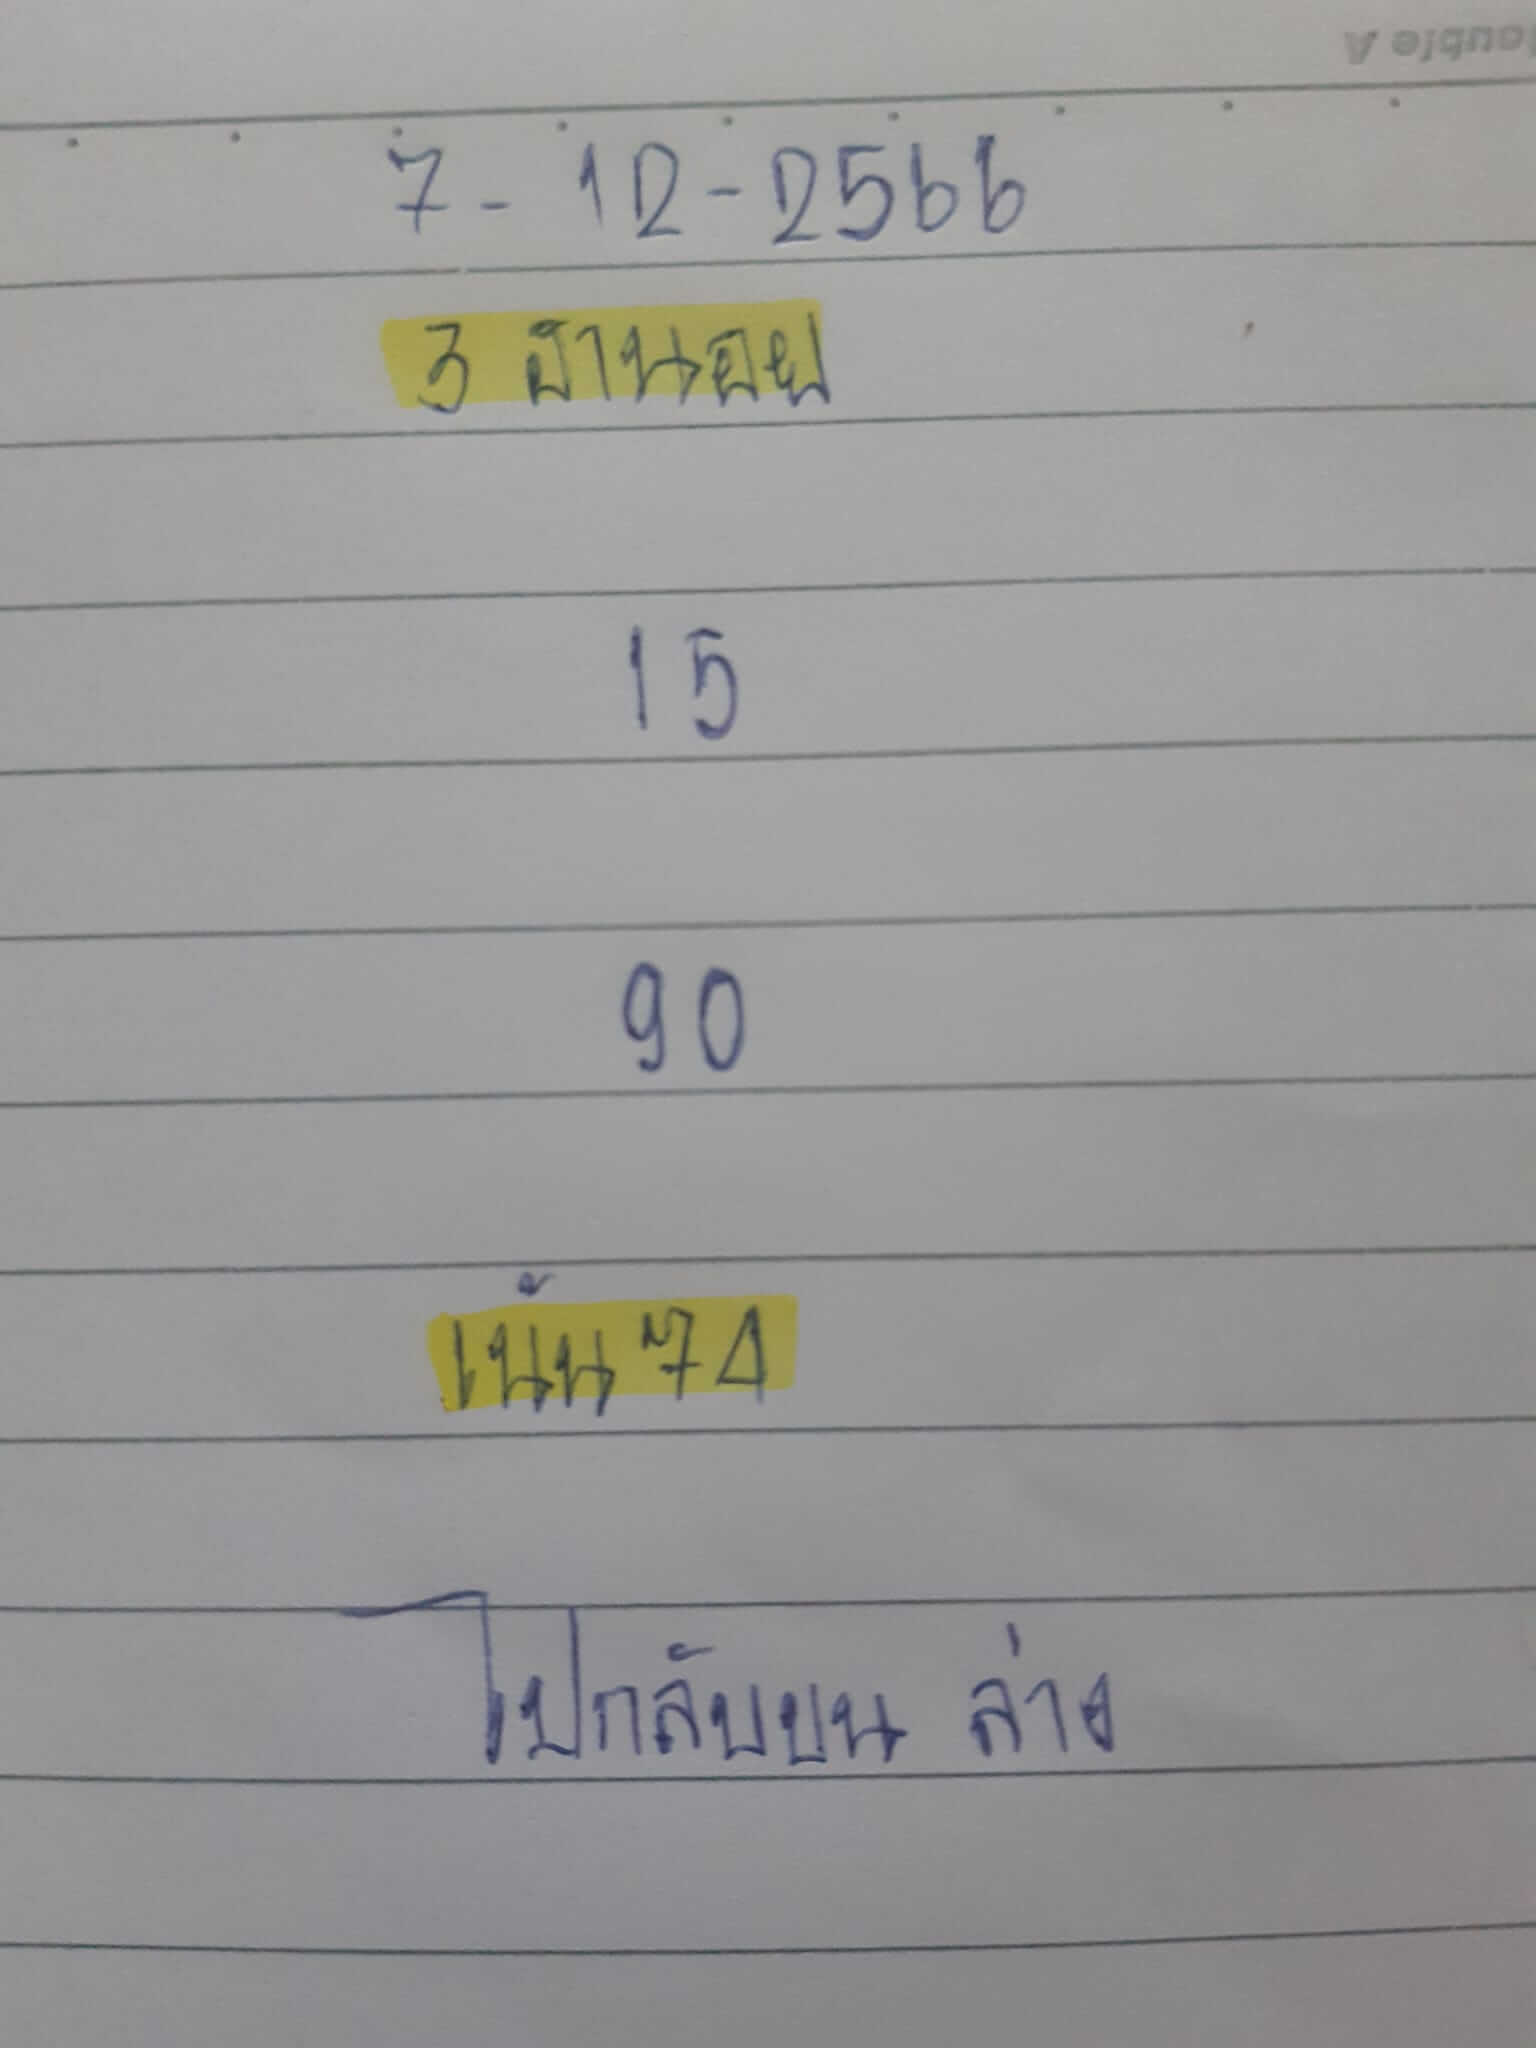 Double A
7 - 12 - 2566
3 อ่านอย
15
90
เน้น 74
ไปกลับบน ล่าง